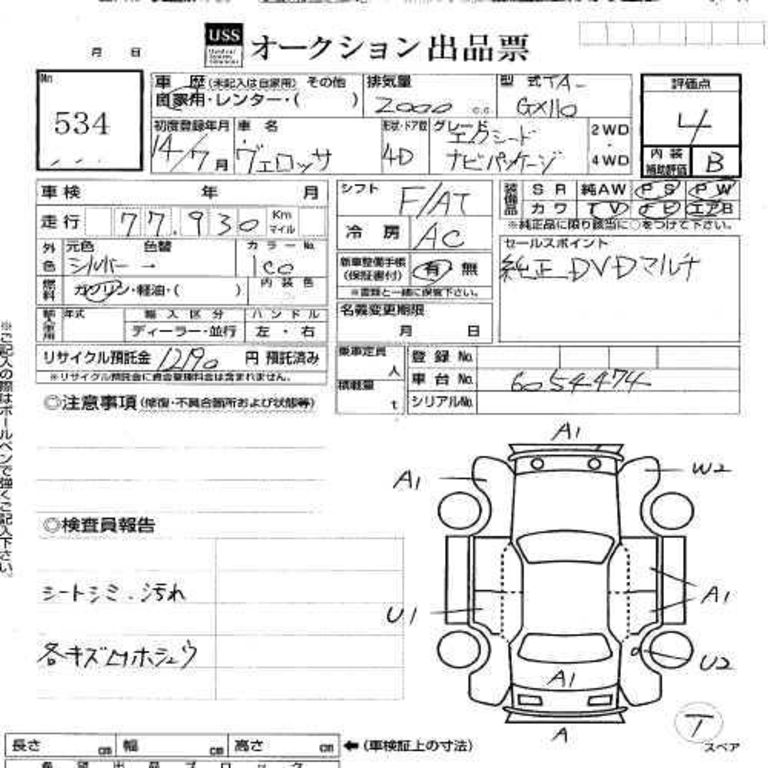 月 日 USS オークション出品票
No 534
車歴(未記入は自家用) その他 排気量 型式 TA-
自家用・レンター・( ) 2000 c.c. GX110
評価点 4
初度登録年月 車名 形状・ドア数 グレード 2WD
14/7月 ヴェロッサ 4D ナビパッケージ 4WD
内装補助評価 B
車検 年 月 シフト F/AT
装備品 SR 純AW PS PW
カワ TV ナビ エアB
※純正品に限り該当に○をつけて下さい。
走行 77,930 Km マイル 冷房 AC
セールスポイント
純正DVDマルチ
外色 元色 色替 カラーNo.
シルバー → 1C0
新車整備手帳(保証書付) 有 無
※書類と一緒に保管下さい。
燃料 ガソリン・軽油・( ) 内装色
名義変更期限 月 日
輸入車用 年式 輸入区分 ハンドル
ディーラー・並行 左・右
リサイクル預託金 12190 円 預託済み
※リサイクル預託金に資金管理料金は含まれません。
乗車定員 人 登録No.
積載量 t 車台No. 6054474
シリアルNo.
◎注意事項(修復・不具合箇所および状態等)
※ご記入の際はボールペンで強くご記入下さい。
◎検査員報告
シートシミ・汚れ
A1
A1
W2
U1
A1
U2
A1
A
T
スペア
長さ cm 幅 cm 高さ cm ←(車検証上の寸法)
希望出品ブロック